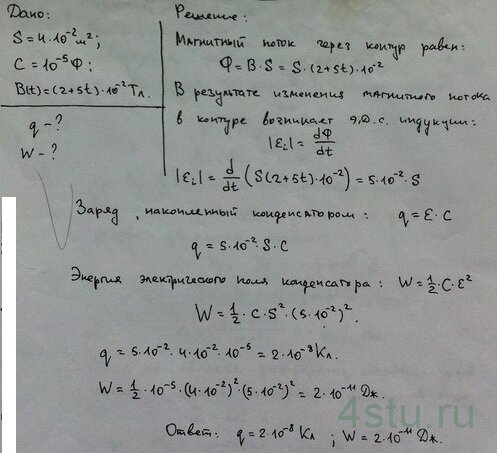 Дано:
S = 4·10⁻² м²;
C = 10⁻⁵ Ф;
B(t) = (2+5t)·10⁻² Тл.
q - ?
W - ?
Решение:
Магнитный поток через контур равен:
Ф = B·S = S·(2+5t)·10⁻²
В результате изменения магнитного потока
в контуре возникает э.д.с. индукции:
|εi| = dФ/dt
|εi| = d/dt (S(2+5t)·10⁻²) = 5·10⁻²·S
Заряд, накопленный конденсатором: q = ε·C
q = 5·10⁻²·S·C
Энергия электрического поля конденсатора: W = 1/2·C·ε²
W = 1/2·C·S²·(5·10⁻²)².
q = 5·10⁻²·4·10⁻²·10⁻⁵ = 2·10⁻⁸ Кл.
W = 1/2·10⁻⁵·(4·10⁻²)²·(5·10⁻²)² = 2·10⁻¹¹ Дж.
4stu.ru
Ответ: q = 2·10⁻⁸ Кл; W = 2·10⁻¹¹ Дж.